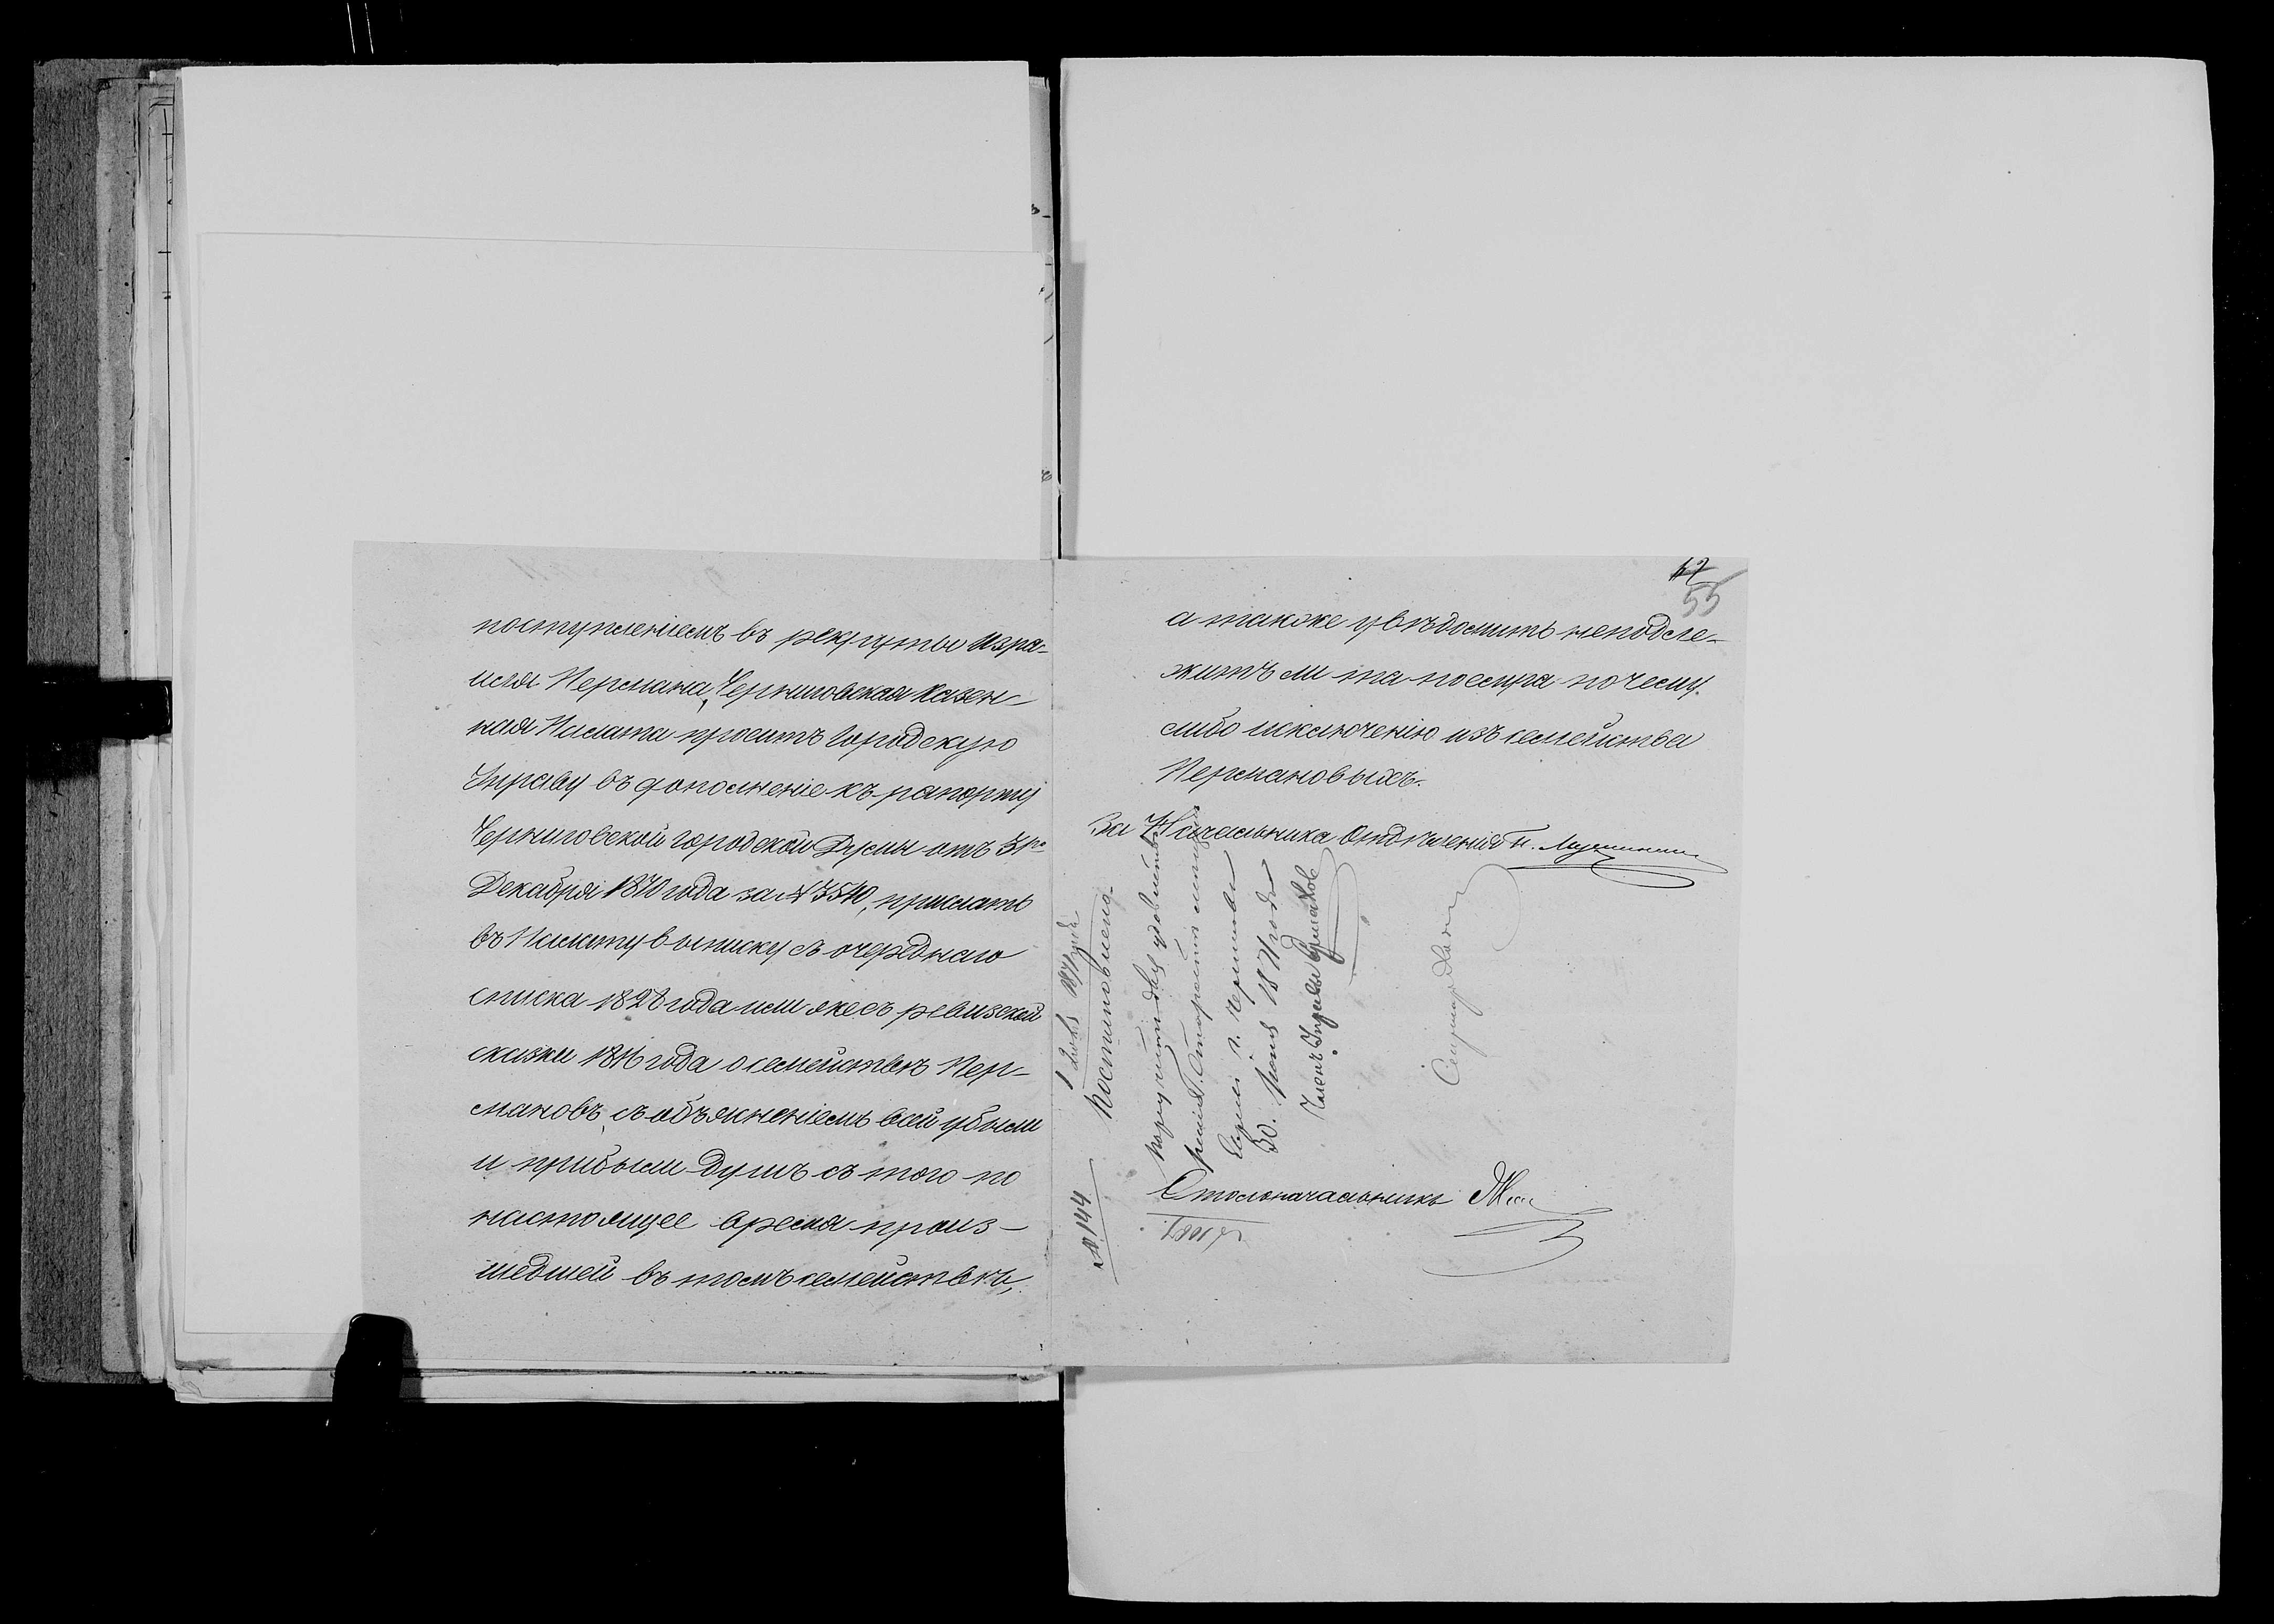 поступленіемъ въ рекруты Изра-
иля Перлмана, Черниговская Казен-
ная Палата проситъ Городскую
Управу въ дополненіе къ рапорту
Черниговской Городской Думы отъ 31го
Декабря 1870 года за № 3540, прислать
въ Палату выписку съ очереднаго
списка 1828 года или же съ ревизской
сказки 1816 года о семействѣ Пер-
мановъ, съ объясненіемъ всей убыли
и прибыли душъ съ того по
настоящее время произ-
шедшей въ томъ семействѣ,
55
а также увѣдомить неподле-
житъ ли та послуга почему
либо исключенію изъ семейства
Пермановыхъ.
За Начальника Отдѣленія
Столоначальникъ
№ 144
1 1871 года
Постановлено
поручить
г.
30. Іюня 1871 года
Членъ Управы